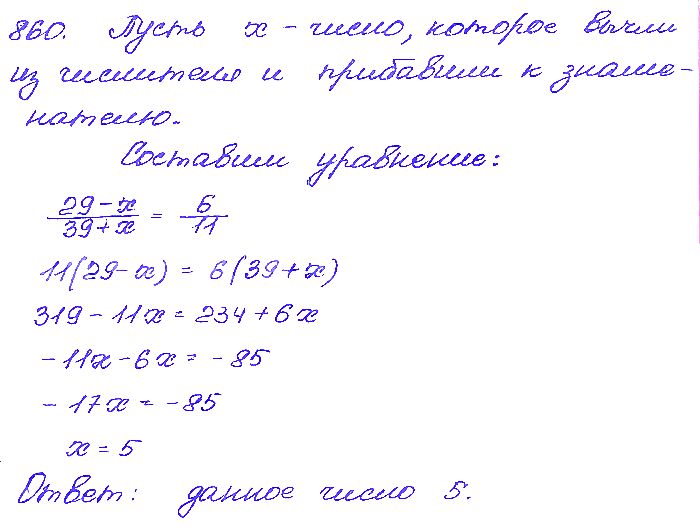 860. Пусть x - число, которое вычли
из числителя и прибавили к знаме-
нателю.
Составим уравнение:
(29-x)/(39+x) = 6/11
11(29-x) = 6(39+x)
319-11x = 234+6x
-11x-6x = -85
-17x = -85
x = 5
Ответ: данное число 5.